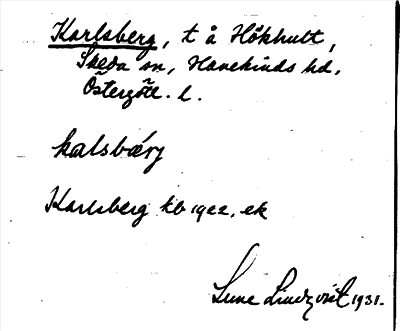 Karlsberg, t å Hökhult,
Skeda sn, Hanekinds hd,
Östergötl. l.
kalsbærj
Karlsberg kb 1922, ek
Sune Lindqvist 1931.